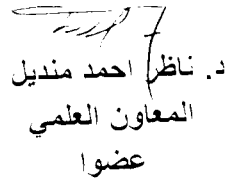 د. ناظر احمد منديل
المعاون العلمي
عضوا